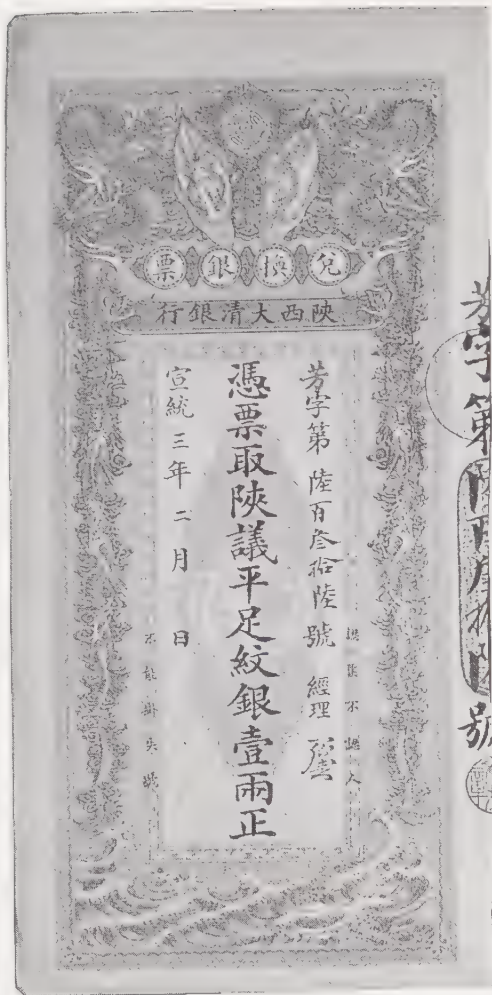 兌換銀票
陝西大清銀行
認票不認人
芳字第陸百叁拾陸號 經理
憑票取陝議平足紋銀壹兩正
宣統三年二月 日
不能掛失號
芳字第陸百叁拾陸號